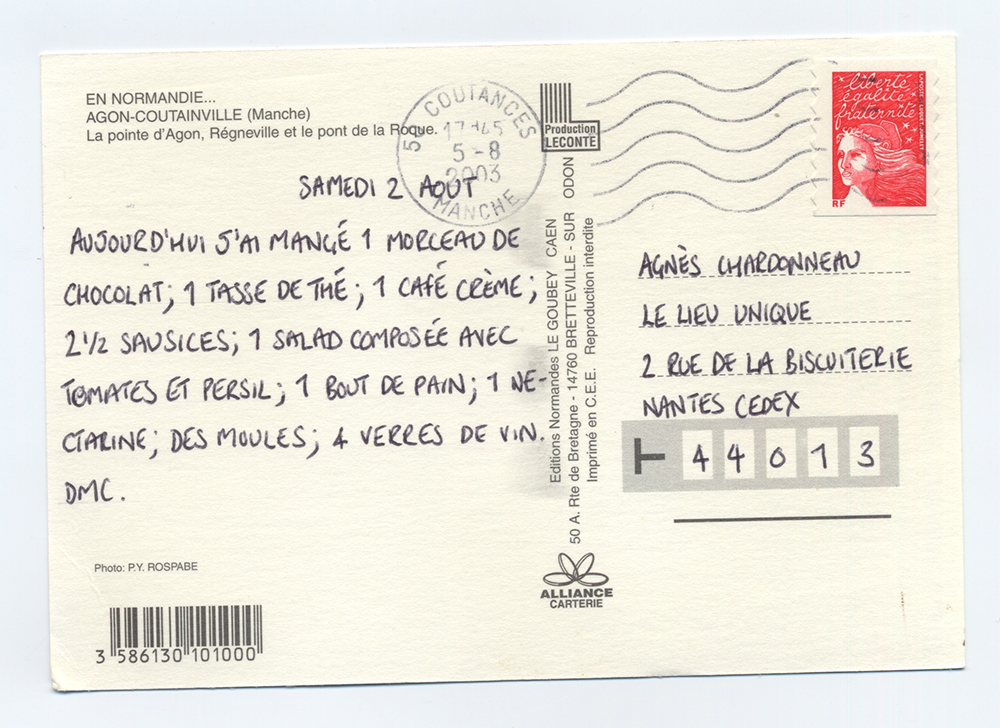 EN NORMANDIE...
AGON-COUTAINVILLE (Manche)
La pointe d'Agon, Régneville et le pont de la Roque.
SAMEDI 2 AOUT
AUJOURD'HUI J'AI MANGÉ 1 MORCEAU DE
CHOCOLAT; 1 TASSE DE THÉ; 1 CAFÉ CRÈME;
2 1/2 SAUSICES; 1 SALAD COMPOSÉE AVEC
TOMATES ET PERSIL; 1 BOUT DE PAIN; 1 NE-
CTARINE; DES MOULES; 4 VERRES DE VIN.
DMC.
Photo: P.Y. ROSPABE
3 586130 101000
COUTANCES
5-8
2003
MANCHE
Production
LECONTE
Editions Normandes LE GOUBEY CAEN
50 A. Rte de Bretagne - 14760 BRETTEVILLE - SUR ODON
Imprimé en C.E.E. Reproduction interdite
ALLIANCE
CARTERIE
liberté
égalité
fraternité
RF
AGNÈS CHARDONNEAU
LE LIEU UNIQUE
2 RUE DE LA BISCUITERIE
NANTES CEDEX
44013